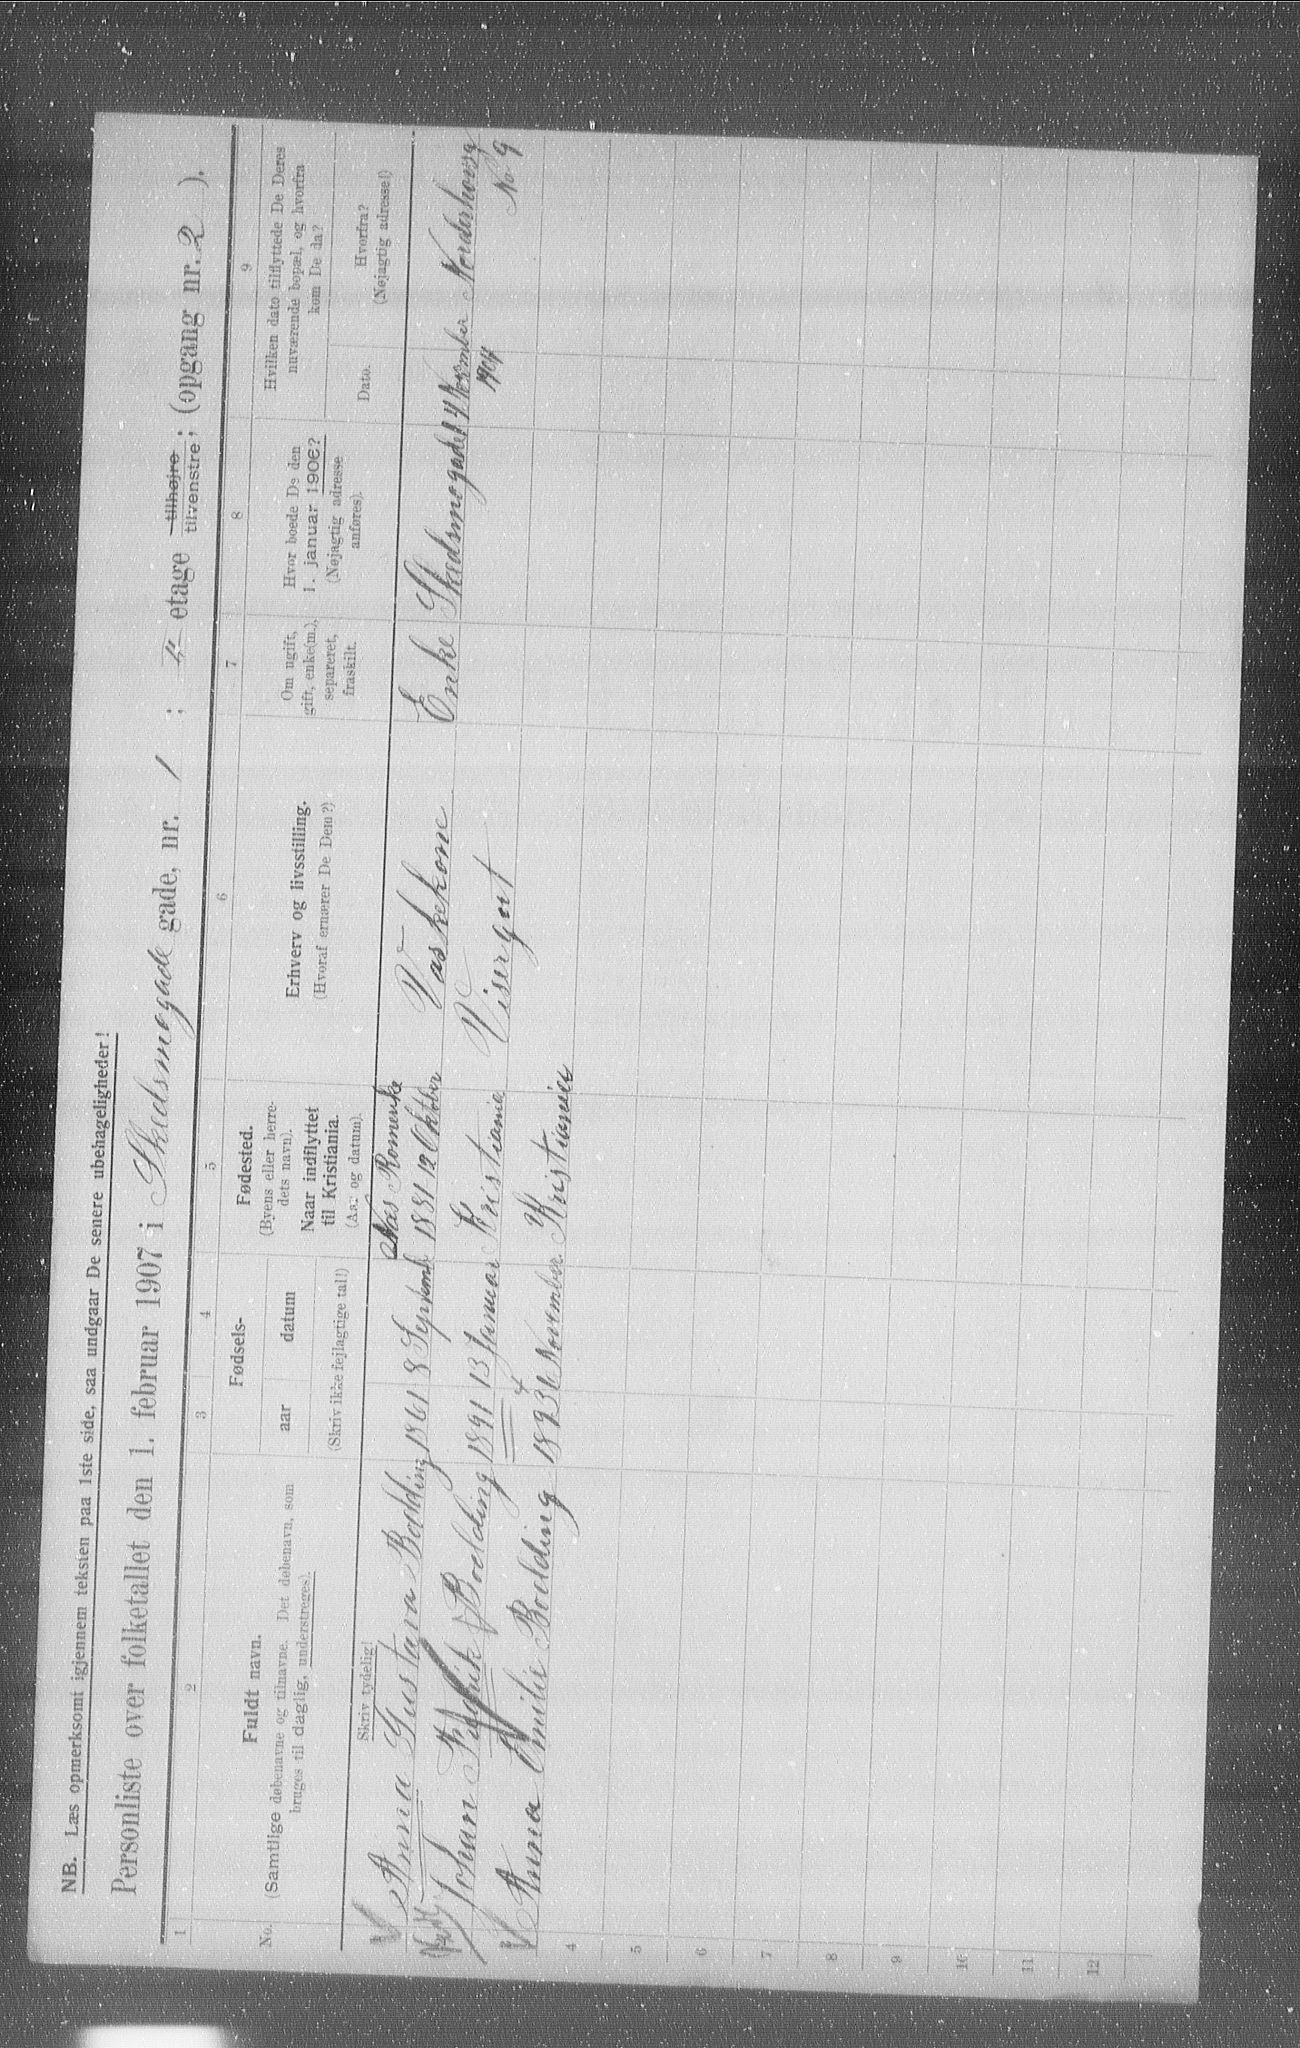 NB. Læs opmerksomt igjennem teksten paa 1ste side, saa undgaar De senere ubehageligheder!
Personliste over folketallet den 1. februar 1907 i Skedsmogade gade, nr. 1 ; 4 etage tilhøjre tilvenstre; (opgang nr. 2 ).
1 2 3 4 5 6 7 8 9
No.
Fuldt navn.
(Samtlige døbenavne og tilnavne. Det døbenavn, som
bruges til daglig, understreges).
Skriv tydelig!
Fødsels-
aar datum
(Skriv ikke fejlagtige tal!)
Fødested.
(Byens eller herre-
dets navn).
Naar indflyttet
til Kristiania.
(Aar og datum).
Erhverv og livsstilling.
(Hvoraf ernærer De Dem?)
Om ugift,
gift, enke(m.),
separeret,
fraskilt.
Hvor boede De den
1. januar 1906?
(Nøjagtig adresse
anføres).
Hvilken dato tilflyttede De Deres
nuværende bopæl, og hvorfra
kom De da?
Dato.
Hvorfra?
(Nøjagtig adresse!)
Næs Romerike
Anna Gustava Bolding 1861 8 Septemb 1881 12 Oktober Vaskekone Enke Skedsmogade 1 4 November Norderhovsg
1904 No 9
Johan Fredrik Bolding 1891 13 Januar Kristiania Visergut
Anna Emilie Bolding 1893 6 November Kristiania
4
5
6
7
8
9
10
11
12